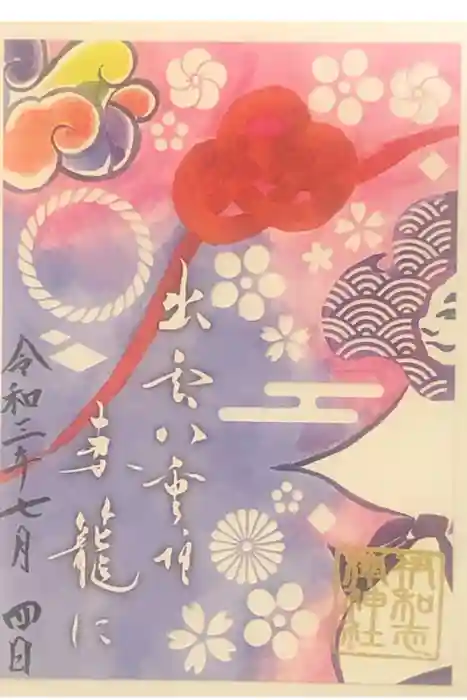 出雲八重垣
妻籠に
令和三年七月四日
伊和志
津神社